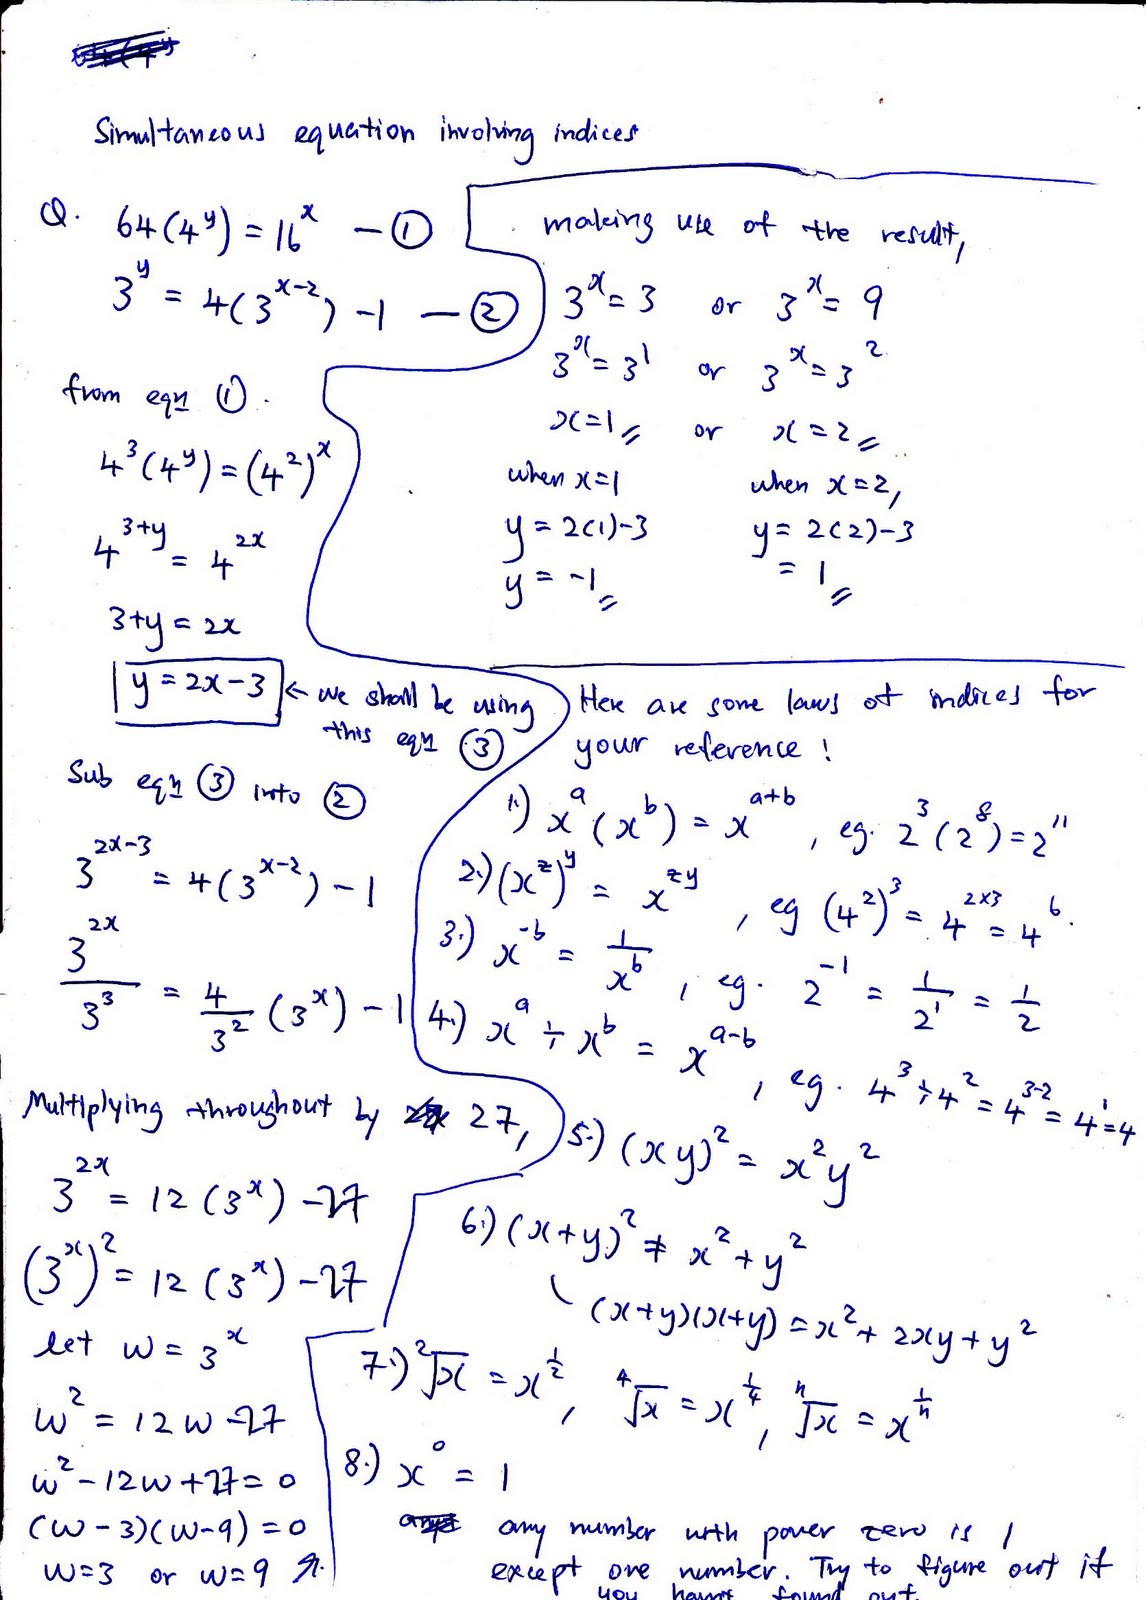 Simultaneous equation involving indices
Q. 64(4^y) = 16^x — ①
3^y = 4(3^(x-2)) - 1 — ②
from eqn ①.
4^3(4^y) = (4^2)^x
4^(3+y) = 4^(2x)
3+y = 2x
y = 2x-3 ← we shall be using
this eqn ③
Sub eqn ③ into ②
3^(2x-3) = 4(3^(x-2)) - 1
3^(2x)/3^3 = 4/3^2 (3^x) - 1
Multiplying throughout by 27,
3^(2x) = 12(3^x) - 27
(3^x)^2 = 12(3^x) - 27
let w = 3^x
w^2 = 12w - 27
w^2 - 12w + 27 = 0
(w-3)(w-9) = 0
w=3 or w=9
making use of the result,
3^x = 3 or 3^x = 9
3^x = 3^1 or 3^x = 3^2
x=1 or x=2
when x=1 when x=2,
y = 2(1)-3 y = 2(2)-3
y = -1 = 1
Here are some laws of indices for
your reference!
1.) x^a(x^b) = x^(a+b), eg. 2^3(2^8) = 2^11
2.) (x^z)^y = x^(zy), eg (4^2)^3 = 4^(2×3) = 4^6.
3.) x^(-b) = 1/x^b, eg. 2^(-1) = 1/2^1 = 1/2
4.) x^a ÷ x^b = x^(a-b), eg. 4^3 ÷ 4^2 = 4^(3-2) = 4^1 = 4
5.) (xy)^2 = x^2y^2
6.) (x+y)^2 ≠ x^2 + y^2
(x+y)(x+y) = x^2 + 2xy + y^2
7.) ²√x = x^(1/2), ⁴√x = x^(1/4), ⁿ√x = x^(1/n)
8.) x^0 = 1
any number with power zero is 1
except one number. Try to figure out if
you haven't found out.